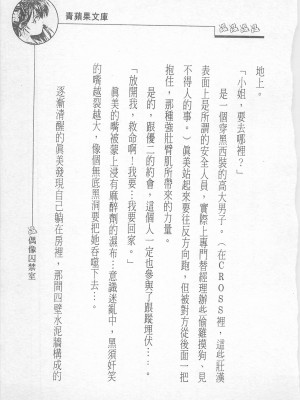 青蘋果文庫
地上。
「小姐，要去哪裡？」
是一個穿黑西裝的高大男子。（在CROSS裡，這些壯漢
表面上是所謂的安全人員，實際上專門替經理辦些偷雞摸狗、見
不得人的事。）眞美站起來要往反方向跑，但被對方從後面一把
抱住，那種強壯臂肌所帶來的力量。
是的，跟優二的約會。這個人一定也參與了跟蹤埋伏……。
「放開我，救命啊！我要…我要回家。」
眞美的嘴被罩上浸有麻醉劑的濕布…意識迷亂中，黑須奸笑
的嘴越裂越大，像個無底黑洞要把她吞噬下去…。
逐漸清醒的眞美發現自己躺在房裡，那間四壁水泥牆構成的
偶像囚禁室